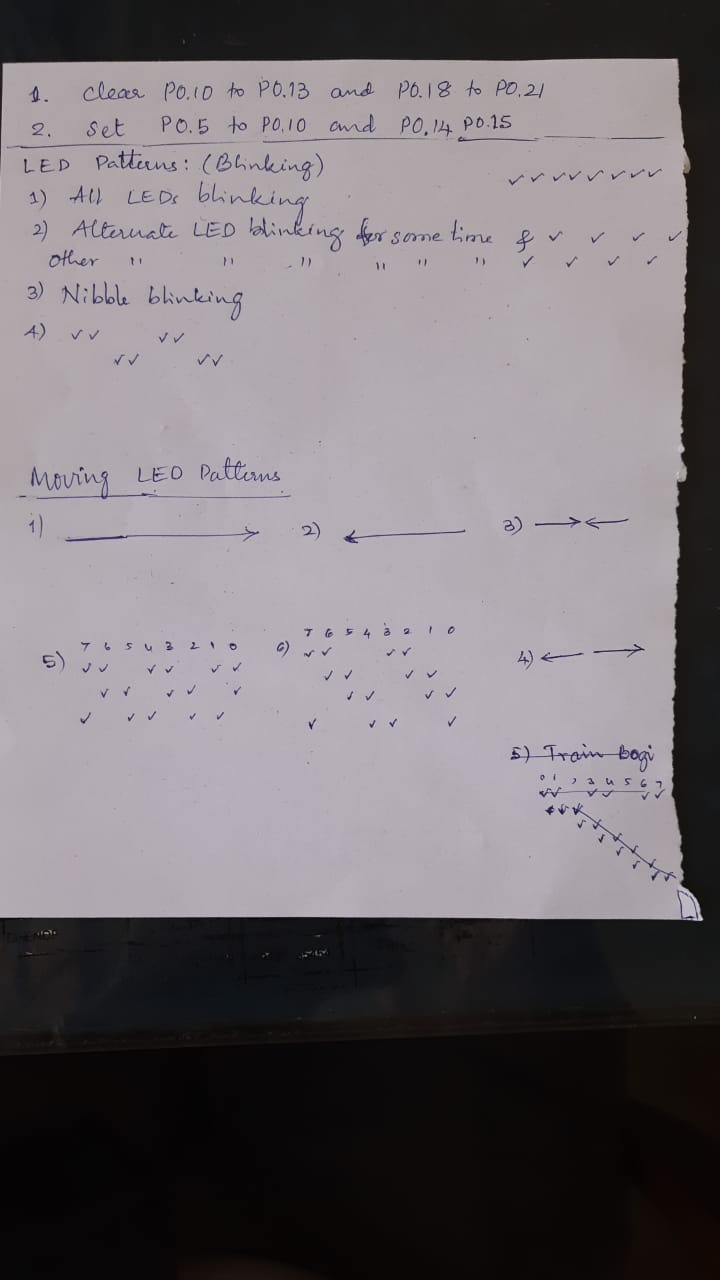 1. Clear P0.10 to P0.13 and P0.18 to P0.21
2. Set P0.5 to P0.10 and P0.14 P0.15
LED Patterns: (Blinking)
✓✓✓✓✓✓✓✓
1) All LEDs blinking
2) Alternate LED blinking for some time & ✓ ✓ ✓ ✓
Other " " " " " " ✓ ✓ ✓ ✓
3) Nibble blinking
4) ✓✓ ✓✓
✓✓ ✓✓
Moving LED Patterns
1) → 2) ← 3) →←
7 6 5 4 3 2 1 0
5) ✓✓ ✓✓ ✓✓
✓✓ ✓✓ ✓
✓ ✓✓ ✓ ✓
7 6 5 4 3 2 1 0
6) ✓✓ ✓✓
✓✓ ✓✓
✓✓ ✓✓
✓ ✓✓ ✓
4) ← →
5) Train bogi
0 1 2 3 4 5 6 7
✓✓ ✓✓ ✓✓